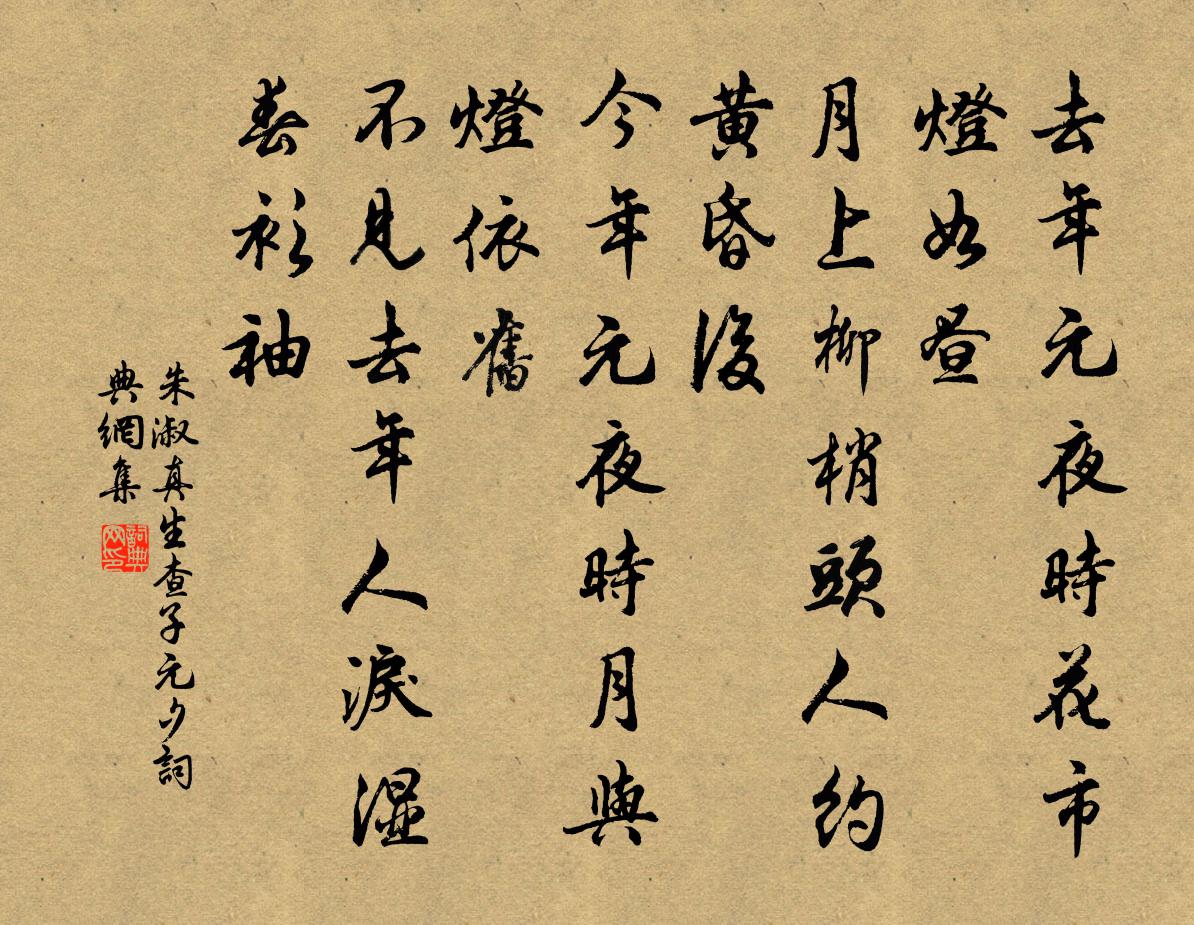 去年元夜時花市
燈如晝
月上柳梢頭人約
黃昏後
今年元夜時月與
燈依舊
不見去年人淚濕
春衫袖
朱淑真生查子元夕詞
典網集
詞典
网印